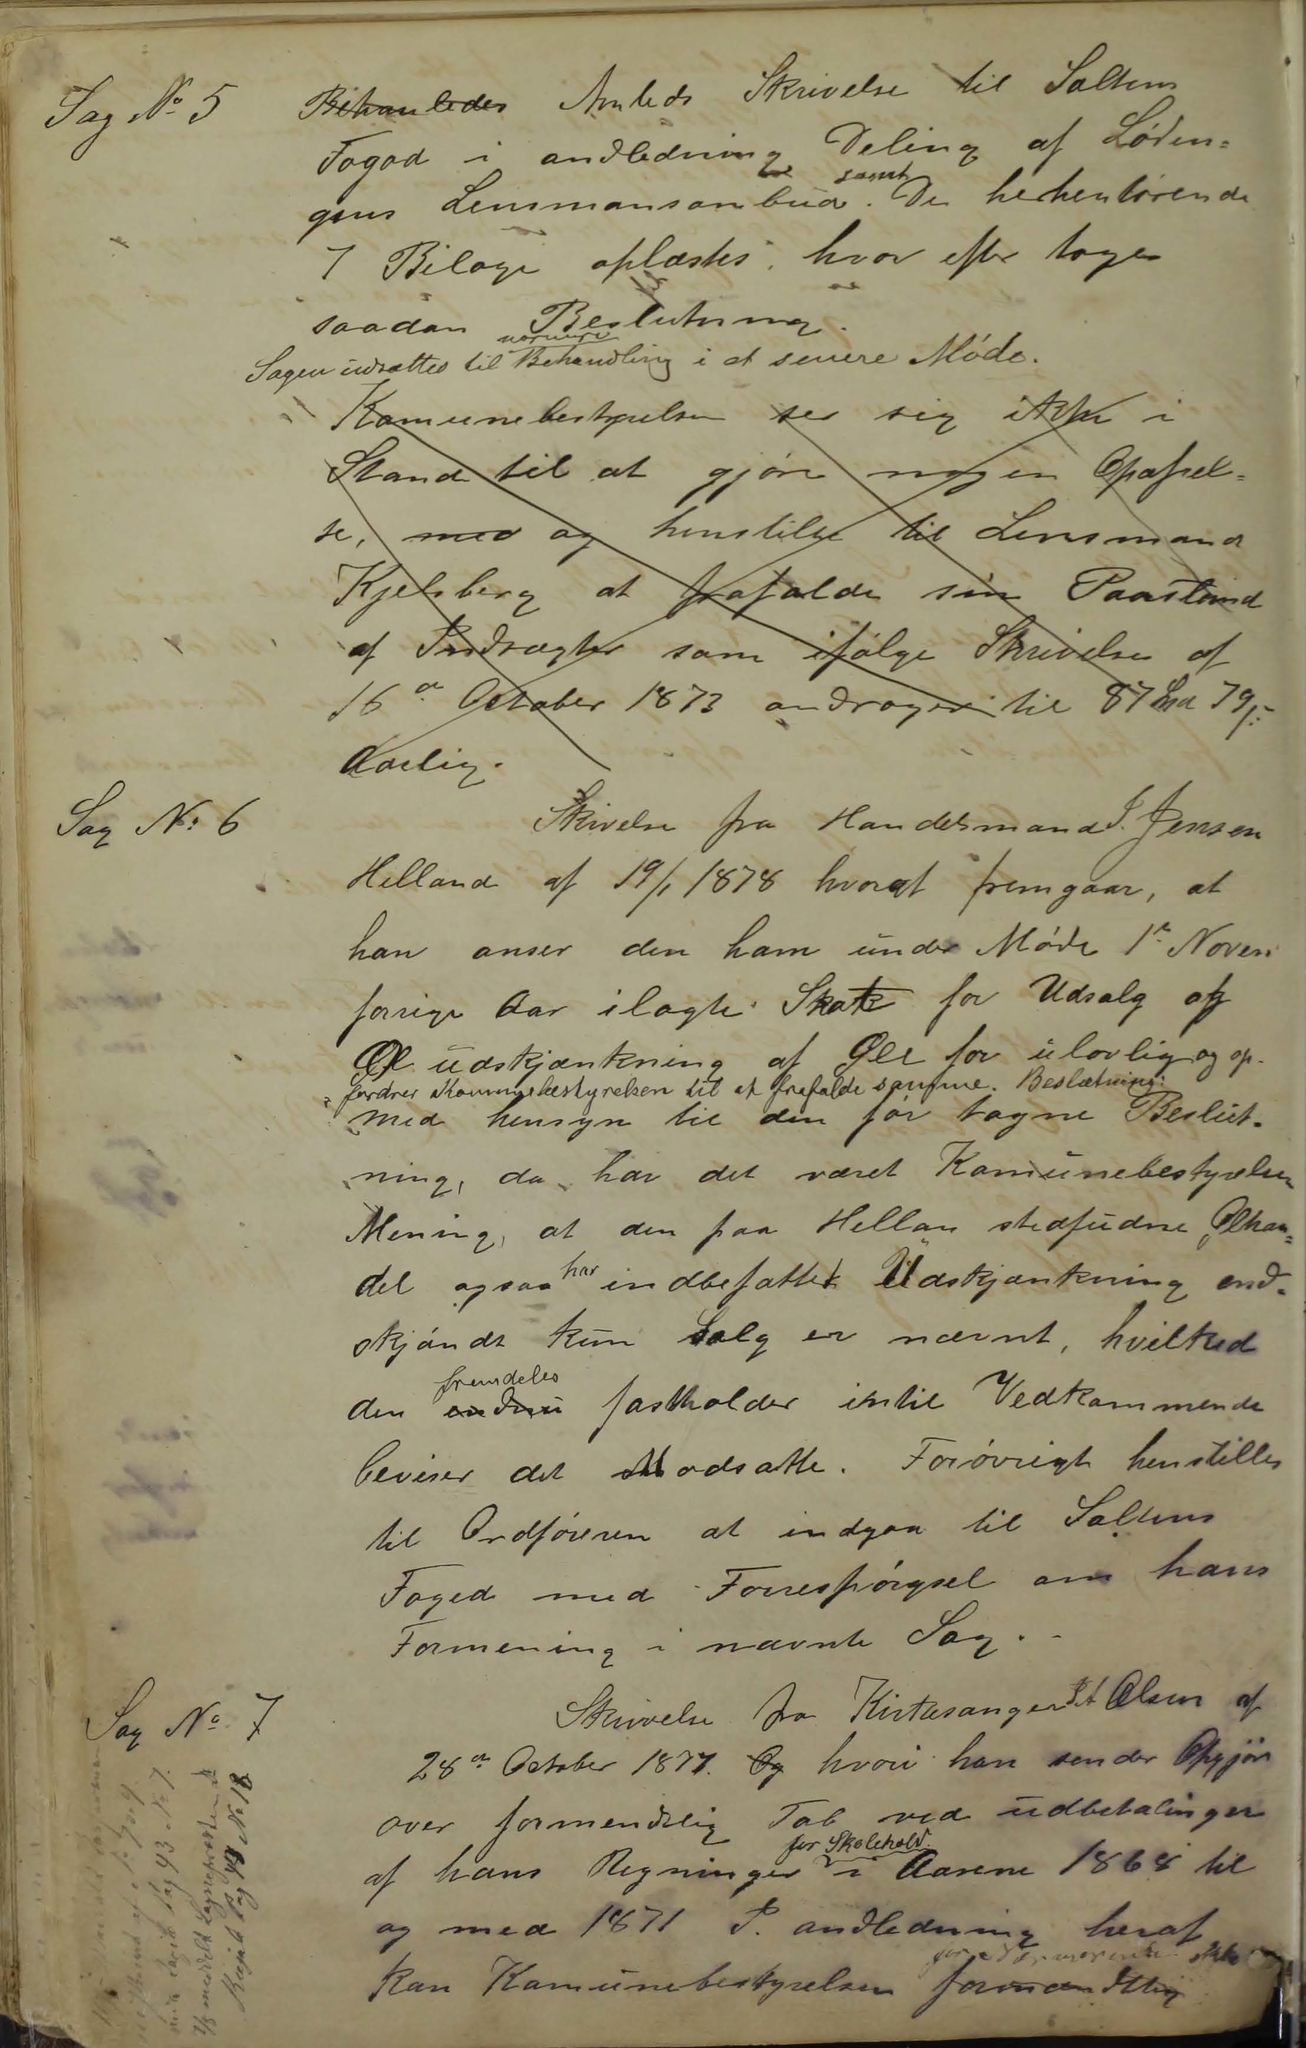 Sag No 5 Behanledes Amteds Skrivelse til Saltens
Fogod i andledning Deling af Lødin=
gens Lensmansombud. samt De herhenhørende
7 Bilage oplæstes, hvor efter toges
saadan Beslutning.
Sagen udsættes til nærmere Behandling i et senere Møde.
Komunebestyrelsen ser sig ikke i
Stand til at gjøre nogen Opofrel=
se, med og henstiller til Lensmand
Kjelsberg at frafalde sin Paastand
af Indtægter som ifølge Skrivelse af
16de October 1873 andrager til 87 79
Aarlig.
Sag No 6 Skivelse fra Handelsmand J. Jensen
Helland af 19/1 1878 hvoraf fremgaar, at
han anser den ham under Møde 1ste Novem
forrige Aar ilagte Skat for Udsalg og
Øl udskjænkning af Øll for ulovlig og op-
fordrer Kommunebestyrelsen til at frafalde samme. Beslutning:
med hensyn til den før tagne Beslut-
ning, da har det været Komunebestyrelsen
Mening, at den paa Hellan stedfudne Ølhan=
del ogsaa har indbefattet Udskjænkning end-
skjøndt kun Salg er nævnt, hvilked
den endnu fremdeles fastholder intil Vedkommende
beviser det Modsatte. Forøvrigt henstilles
til Ordføreren at indgaa til Saltens
Foged med Forrespørgsel om hans
Formening i nævnte Sag.
Sag No 7 Skrivelse fra Kirkesanger Olsen af
28de October 1877. Og hvori han sender Opgjør
over formendtlig Tab ved udbetalinger
af hans Regninger for Skolehold i Aarene 1868 til
og med 1871 I andledning heraf
kan Komunebestyrelsen
meddelt Sogneprest
Kopib Pag No 18